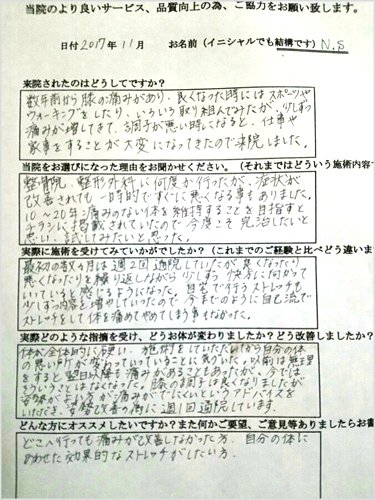 当院のより良いサービス、品質向上の為、ご協力をお願い致します。
日付 2017年11月 お名前（イニシャルでも結構です） N.S
来院されたのはどうしてですか？
数年前から膝の痛みがあり、良くなった時にはスポーツや
ウォーキングをしたり、いろいろ取り組んでみたが、少しずつ
痛みが増してきて、調子が悪い時になると、仕事や
家事をすることが大変になってきたので来院しました。
当院をお選びになった理由をお聞かせください。（それまではどういう施術内容
整骨院、整形外科に何度か行ったが、症状が
改善されても一時的ですぐに悪くなる事もありました。
10～20年 痛みのない体を維持することを目指すと
チラシに掲載されていたので、今度こそ完治したいと
思い、試してみたいと思った。
実際に施術を受けてみていかがでしたか？（これまでのご経験と比べどう違いま
最初の数ヶ月は週2回通院していたが良くなったり
悪くなったりを繰り返しながら少しずつ快方に向かって
いっている感じもようになった。自宅で行うストレッチも
少しずつ内容を増やしていったので、今までのように自己流で
ストレッチをして体を痛めてやめてしまう事もなかった。
実際どのような指摘を受け、どうお体が変わりましたか？どう改善しましたか？
体が全体的に硬い。施術をしていただいてから自分の体
の悪い所が変わっていっていることに気づいた。以前は無理
をすると翌日以降も痛みがあることもあったが、今では
そういうことはなくなった。膝の調子は良くなりましたが
姿勢がよい方が痛みがでにくいというアドバイスを
いただき、姿勢改善の為に週1回通院しています。
どんな方にオススメしたいですか？また何かご要望、ご意見等ありましたらお書
どこへ行っても痛みが改善しなかった方。自分の体に
あわせた効果的なストレッチがしたい方。